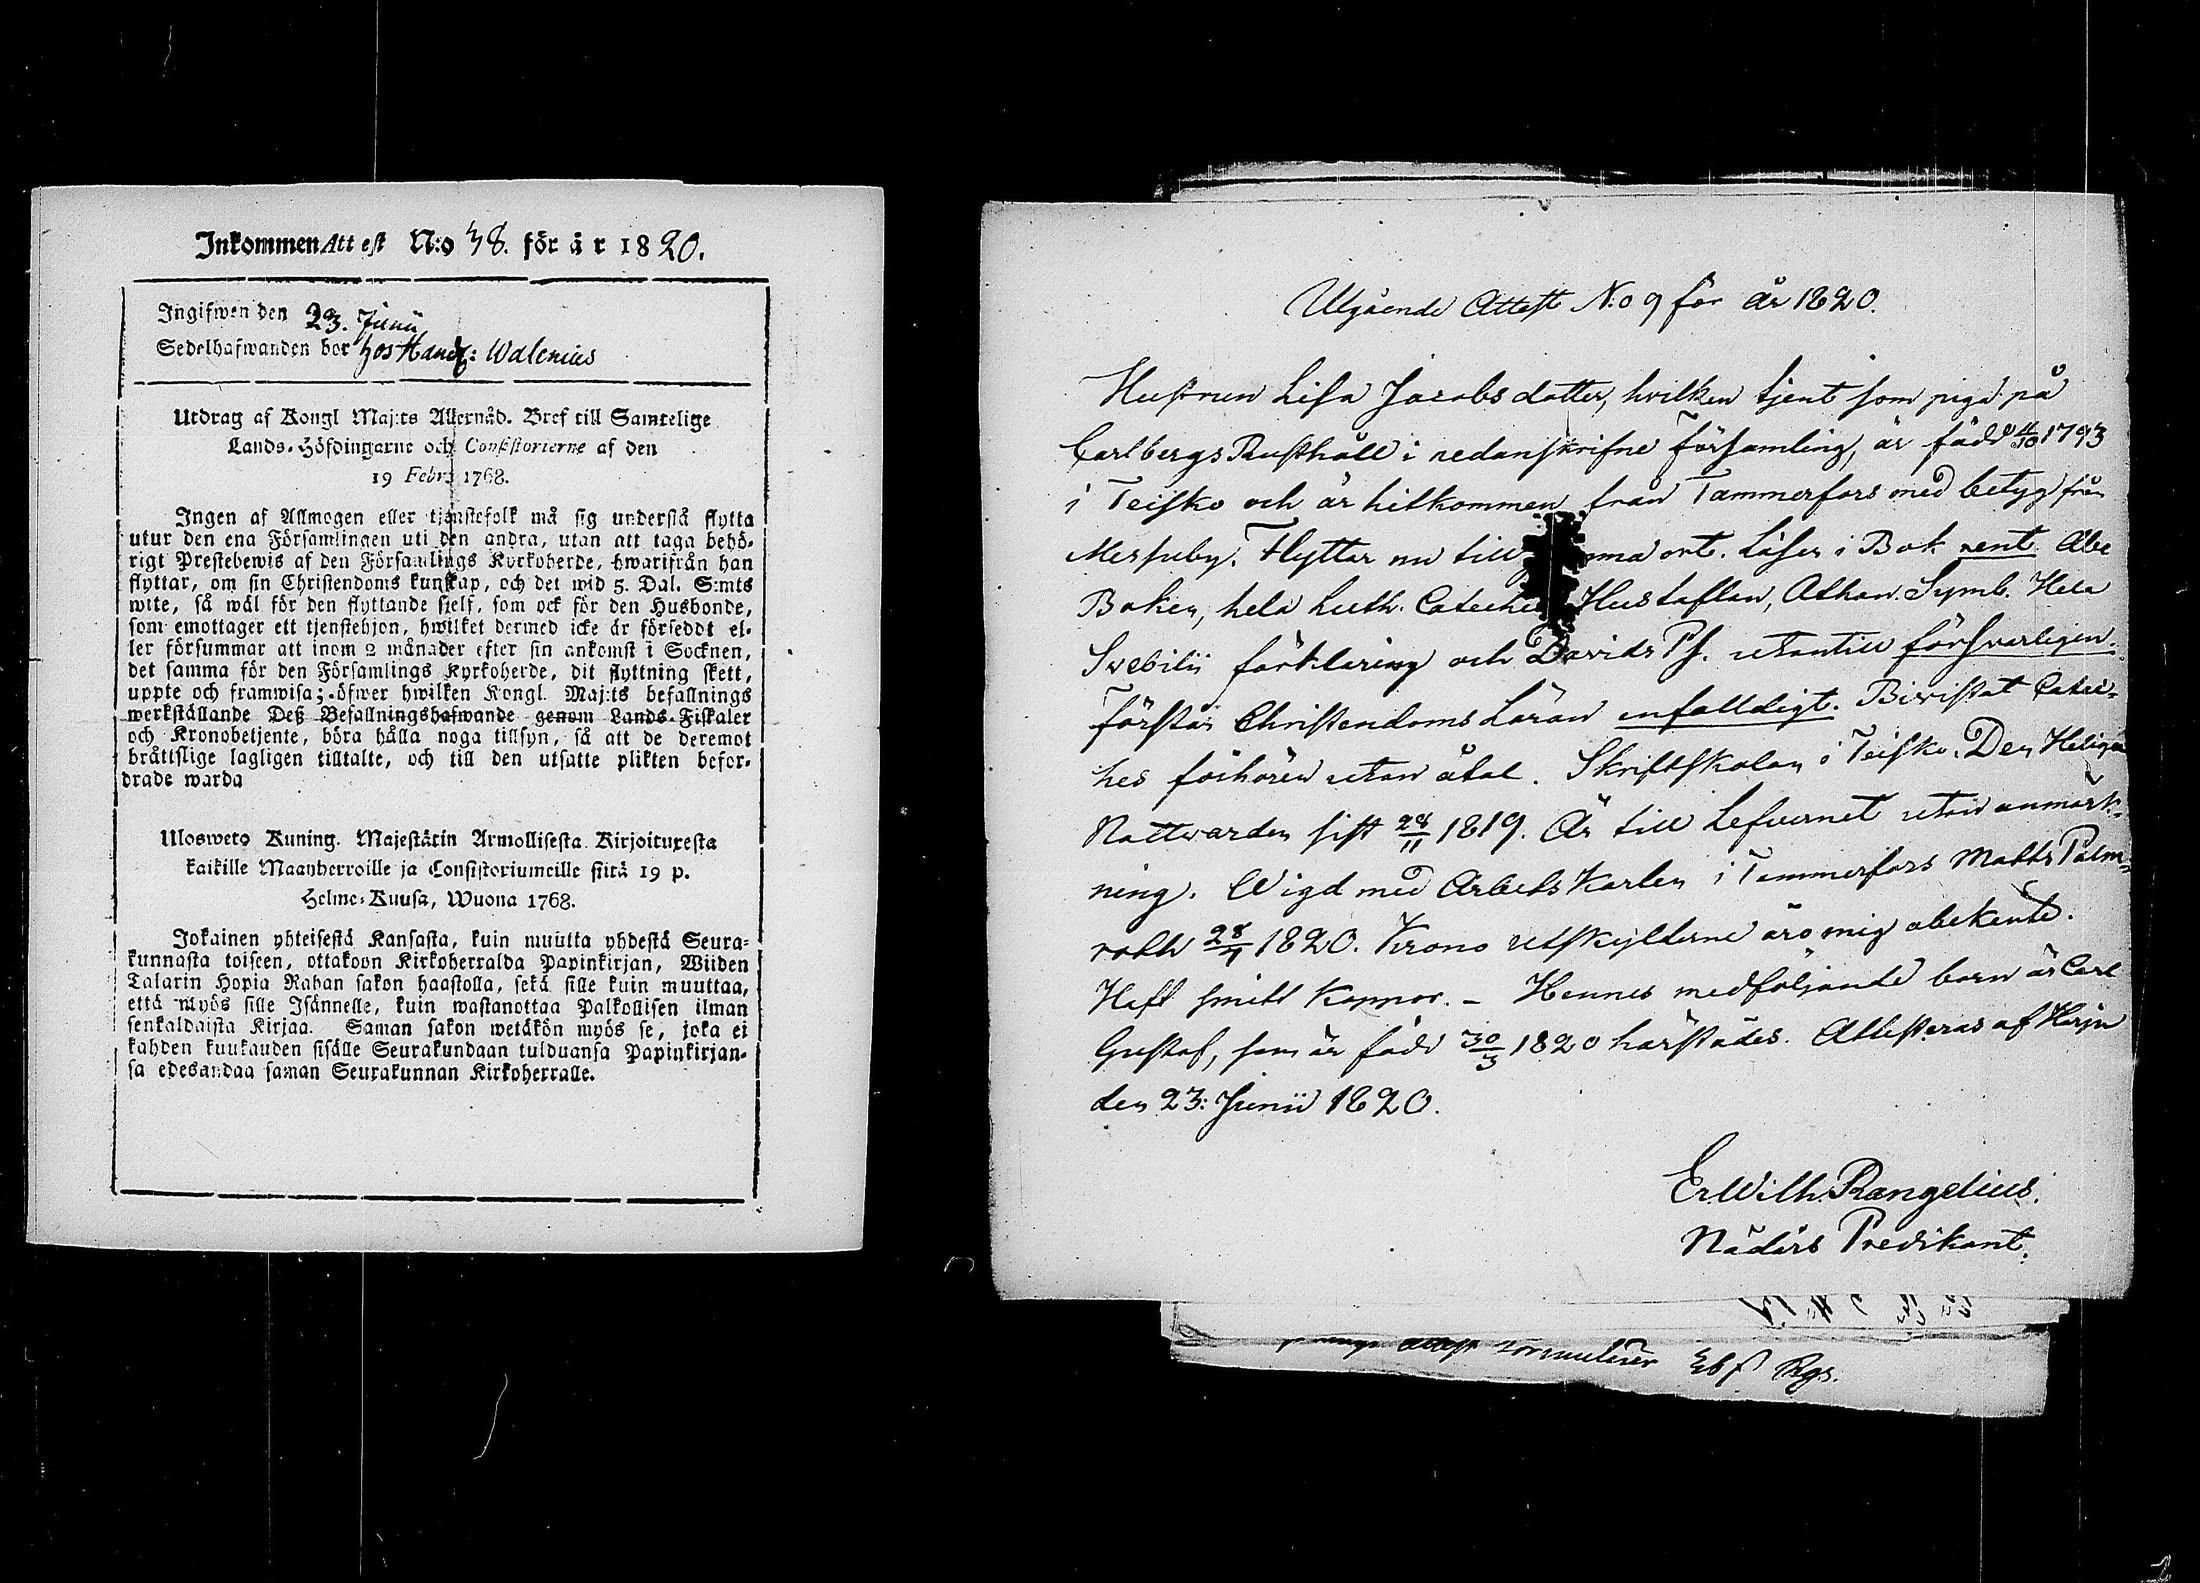 Inkommen Attest N:o 38. för år 1820.
Ingifwen den 23. Junii
Sedelhafwanden bor hos Handl: Walenius
Utdrag af Kongl Maj:ts Allernåd. Bref till Samtelige
Lands-Höfdingarne och Consistorierne af den
19 Febr. 1768.
Ingen af Allmogen eller tjenstefolk må sig understå flytta
utur den ena Församlingen uti den andra, utan att taga behö-
rigt Prestebewis af den Församlings Kyrkoherde, hwarifrån han
flyttar, om sin Christendoms kunskap, och det wid 5. Dal. S:mts
wite, så wäl för den flyttande sjelf, som ock för den Husbonde,
som emottager ett tjenstehjon, hwilket dermed icke är försedt el-
ler försummar att inom 2 månader efter sin ankomst i Socknen,
det samma för den Församlings Kyrkoherde, dit flyttning skett,
uppte och framwisa; öfwer hwilken Kongl. Maj:ts befallnings
werkställande Deß Befallningshafwande genom Lands-Fiskaler
och Kronobetjente, böra hålla noga tillsyn, så att de deremot
bråttslige lagligen tilltalte, och till den utsatte plikten befor-
drade warda
Ulosweto Kuning. Majestätin Armollisesta Kirjoituxesta
kaikille Maanherroille ja Consistoriumeille siitä 19 p.
Helme-Kuusa, Wuona 1768.
Jokainen yhteisestä Kansasta, kuin muutta yhdestä Seura-
kunnasta toiseen, ottakoon Kirkoherralda Papinkirjan, Wiiden
Talarin Hopia Rahan sakon haastolla, sekä sille kuin muuttaa,
että myös sille Isännelle, kuin wastanottaa Palkollisen ilman
senkaldaista Kirjaa. Saman sakon wetäkön myös se, joka ei
kahden kuukauden sisälle Seurakundaan tulduansa Papinkirjan-
sa edesandaa saman Seurakunnan Kirkoherralle.
Utgående Attest N:o 9 för år 1820.
Hustrun Lisa Jacobs dotter, hvilken tjent som piga på
Carlbergs Rusthåll i nedanskrifne Församling, är född 4/10 1793
i Teisko och är hitkommen från Tammerfors med betyg från
Messuby. Flyttar nu till ma ort. Läser i Bok rent Abc
Boken, hela Luth. Cateches Hustaflan, Athan. Symb. Hela
Svebilii förklaring och Davids Ps. utantill försvarligen.
Förstår Christendoms Läran enfalldigt. Bivistat Catec-
hes förhören utan åtal. Skriftskolan i Teisko. Den Heliga
Nattvarden sist 28/11 1819. Är till Lefvernet utan anmärk-
ning. Wigd med Arbets Karlen i Tammerfors Matts Palm-
roth 28/4 1820. Krono utskylderne äro mig obekante.
Haft smitt Koppor. - Hennes medföljande barn är Carl
Gustaf, som är född 30/3 1820 härstädes. Attesteras af Harju
den 23: Junii 1820.
Er. Wilh. Rangelius.
Nådårs Predikant.
attest formulärer Rgs.